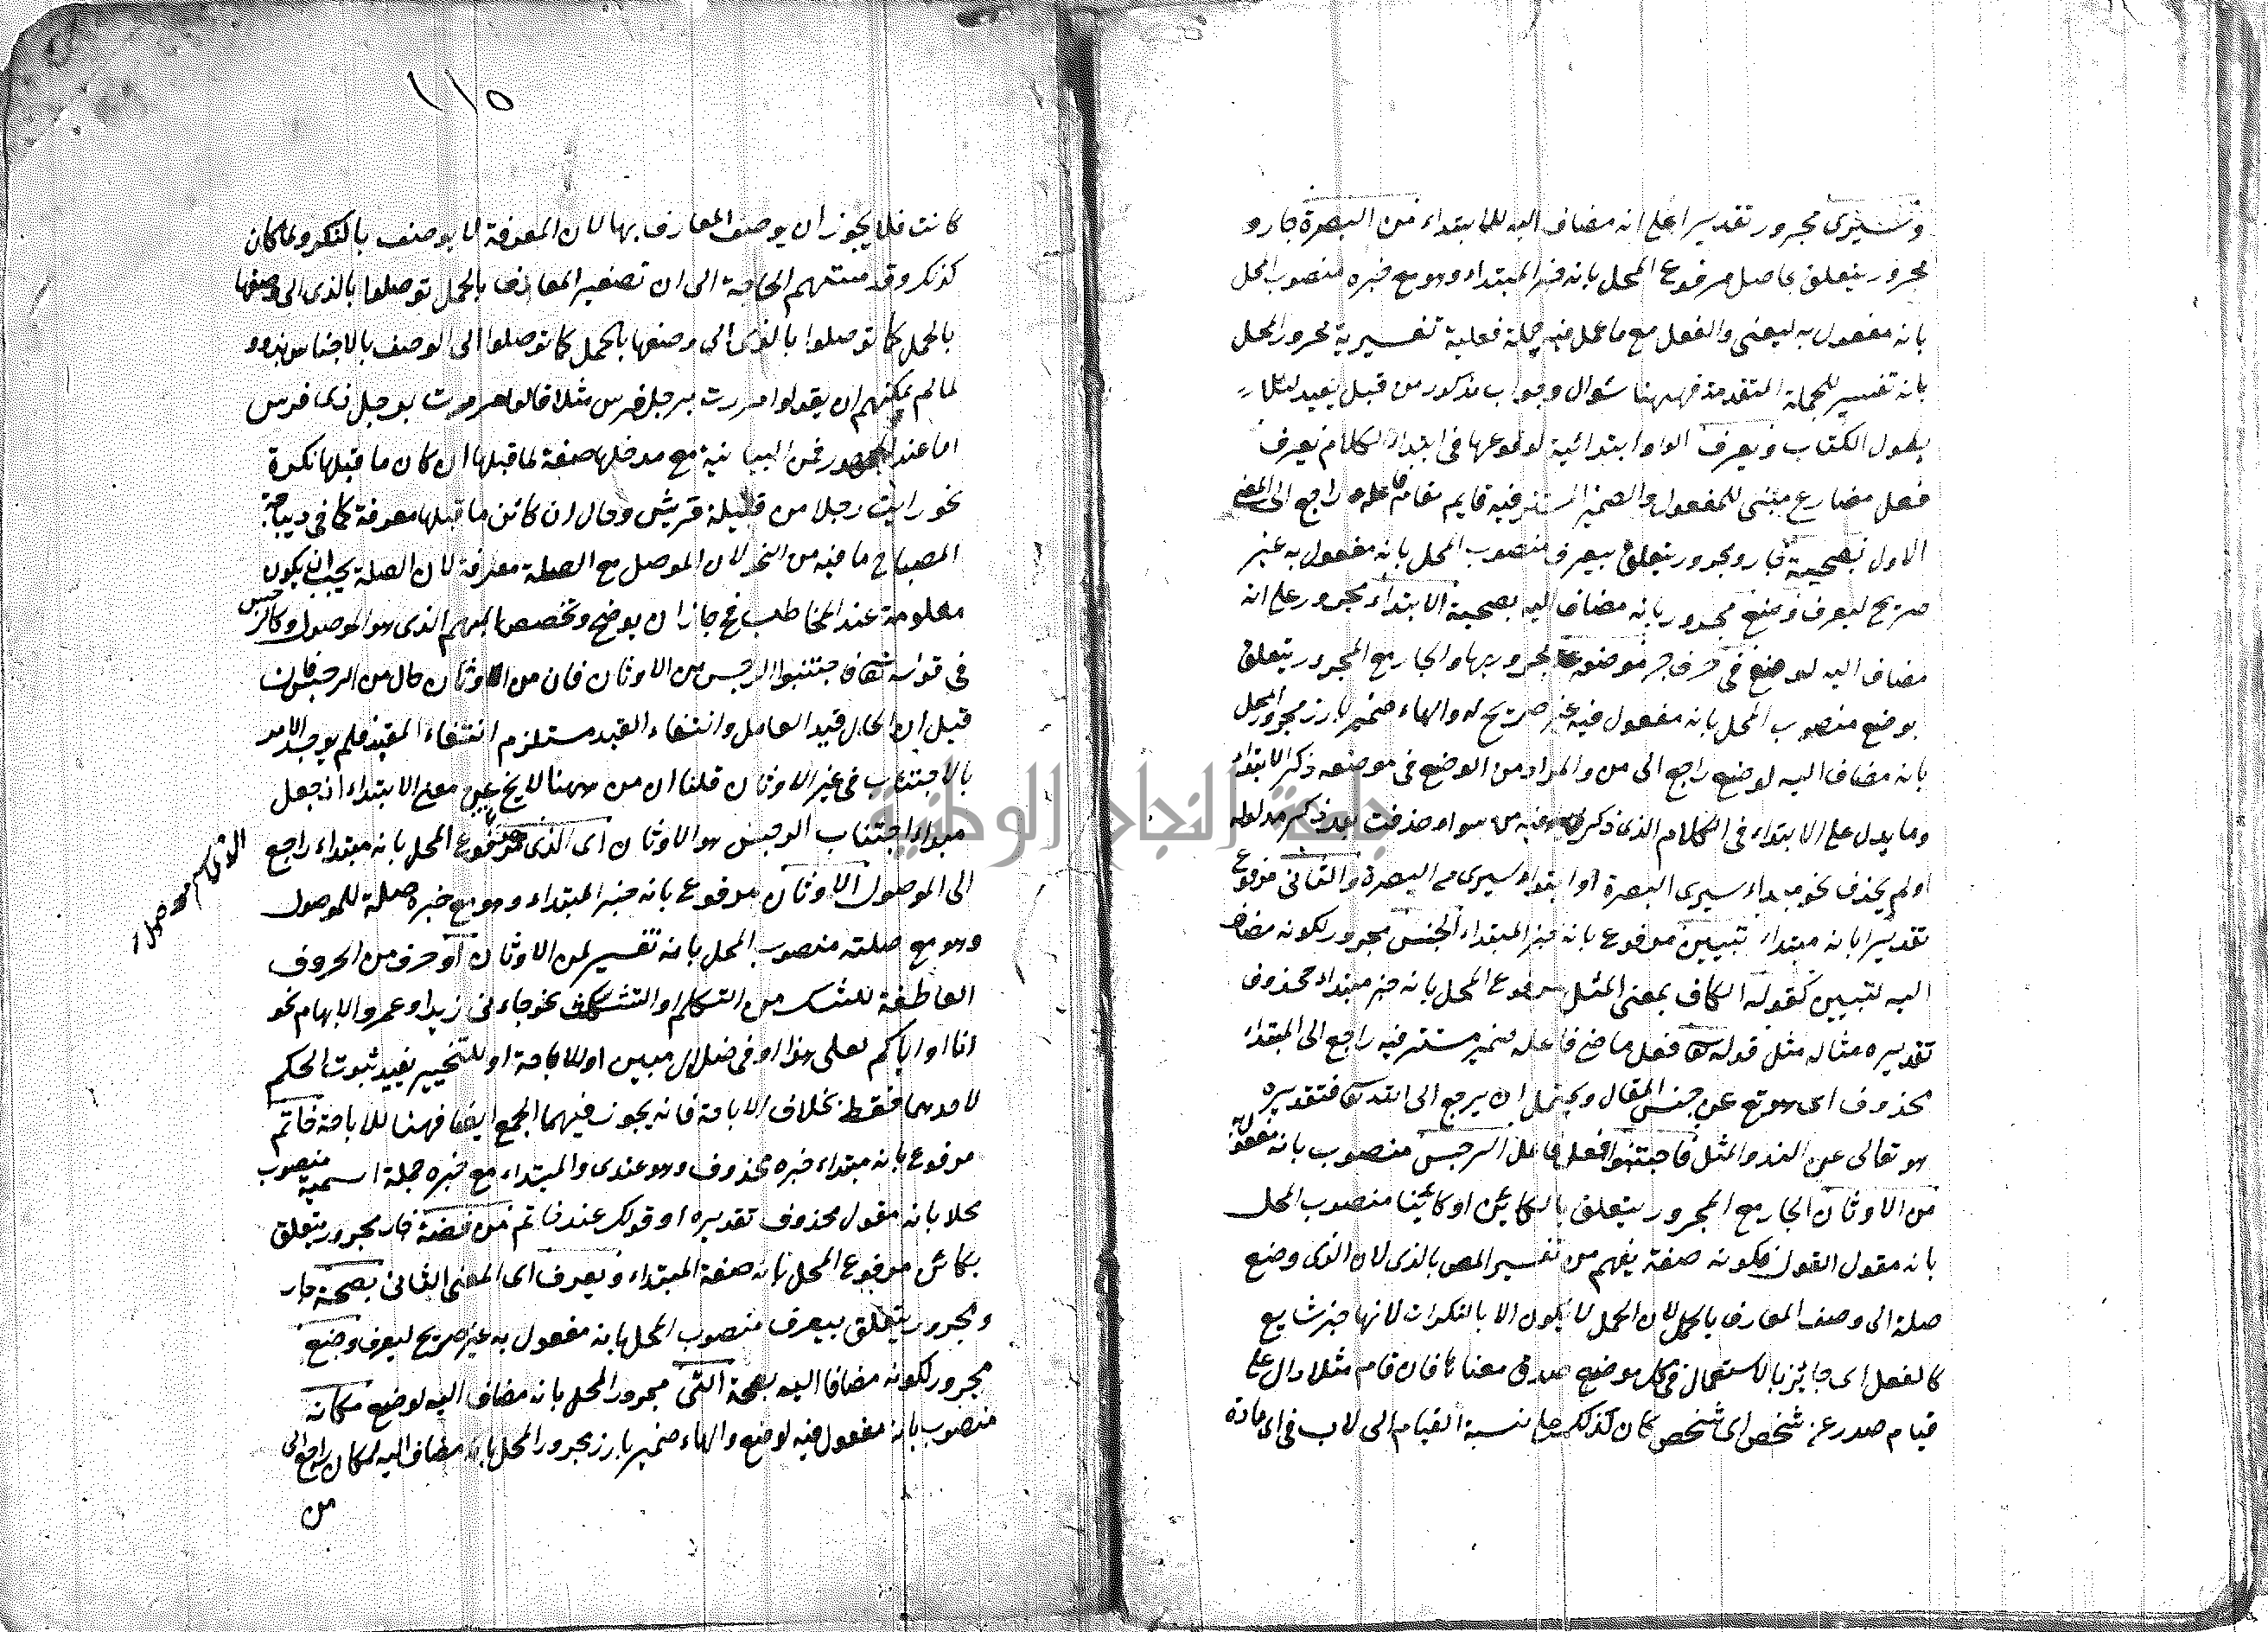 وسيرى مجرور تقديرا على انه مضاف اليه للابتداء من البصرة جار و
مجرور يتعلق بحاصل مرفوع المحل بانه خبر المبتداء وهو مع خبره منصوب المحل
بانه مفعول به ليعنى والفعل مع ما عمل فيه جملة فعلية تفسيرية مجرور المحل
بانه تفسير للجملة المتقدمة فههنا سؤال وجواب مذكور من قبل بعيد لئلا
يطول الكتاب ويعرف الواو ابتدائية لوقوعها فى ابتداء الكلام يعرف
فعل مضارع مبنى للمفعول والضمير المستتر فيه قايم مقام فاعله راجع الى المعنى
الاول بصحة جار ومجرور يتعلق بيعرف منصوب المحل بانه مفعول به غير
صريح ليعرف وضع مجرور بانه مضاف اليه بصحة الابتداء مجرور على انه
مضاف اليه لوضع فى حرف جر موضعه مجرور بها والجار مع المجرور يتعلق
بوضع منصوب المحل بانه مفعول فيه غير صريح له والهاء ضمير بارز مجرور المحل
بانه مضاف اليه لوضع راجع الى من والمراد من الوضع فى موضعه ذكر الابتداء
وما يدل على الابتداء فى الكلام الذى ذكر فيه من سواء حذفت بعد ذكر مدلوله
او لم يحذف نحو مبداء سيرى البصرة او ابتداء سيرى من البصرة والثانى مرفوع
تقديرا بانه مبتداء تبيين مرفوع بانه خبر المبتداء الجنس مجرور لكونه مضاف
اليه لتبيين كقوله الكاف بمعنى المثل مرفوع المحل بانه خبر مبتداء محذوف
تقديره مثاله مثل قوله تعا فعل ماض فاعله ضمير مستتر فيه راجع الى المبتداء
محذوف اى هو تع عن جنس المقال ويحتمل ان يرجع الى الله تعا فتقديره
هو تعالى عن الند والمثل فاجتنبوا فعل فاعل الرجس منصوب بانه مفعوله
من الاوثان الجار مع المجرور يتعلق بالكائن او كائنا منصوب المحل
بانه مقول القول فكونه صفة يفهم من تفسير المص بالذى لان الذى وضع
صلة الى وصف المعارف بالجمل لان الجمل لا يكون الا بالنكرات لانها خبر شايع
كالفعل اى جائز بالاستعمال فى كل موضع صدق معناها فان قام مثلا دال على
قيام صدر عن شخص اى شخص كان كذلك نسبة القيام الى لاب فى اى مادة
١١٥
كانت فلا يجوز ان يوصف المعارف بها لان المعرفة لا يوصف بالنكر ولما كان
كذلك وقد مستهم الحاجة الى ان تصفير المعارف بالجمل توصلوا بالذى الى وصفها
بالجمل كما توصلوا بالذى الى وصفها بالجمل كما توصلوا الى الوصف بالاجناس بذو و
لما لم يمكنهم ان يقولوا مررت برجل فرس مثلا قالوا مررت برجل ذى فرس
اما عند الجمهور فمن البيانية مع مدخلها صفة لما قبلها ان كان ما قبلها نكرة
نحو رايت رجلا من قبيلة قريش وحال ان كان ما قبلها معرفة كما فى ديباجة
المصباح ما فيه من النحو لان الموصل مع الصلة معرفة لان الصلة يجب ان يكون
معلومة عند المخاطب فح جاز ان يوضح وتخصص المبهم الذى هو الموصول وكالرجس
فى قوله تعا فاجتنبوا الرجس من الاوثان فان من الاوثان حال من الرجس فان
قيل ان الحال قيد العامل وانتفاء القيد مستلزم انتفاء المقيد فلم يوجد الامر
بالاجتناب فى غير الاوثان قلنا ان من ههنا لا يخ عن معنى الابتداء اذ جعل
مبداء اجتناب الرجس هو الاوثان اى الذى هو مرفوع المحل بانه مبتداء راجع
الى الموصول الاوثان مرفوع بانه خبر المبتداء وهو مع خبره صلة للموصول
وهو مع صلته منصوب المحل بانه تفسير لمن الاوثان او حرف من الحروف
العاطفة للشك من المتكلم او التشكيك نحو جاءنى زيد او عمرو الابهام نحو
انا او اياكم لعلى هذا او فى ضلال مبين او للاباحة او للتخيير يفيد ثبوت الحكم
لاحدهما فقط بخلاف الاباحة فانه يجوز فيهما الجمع ايضا فههنا للاباحة خاتم
مرفوع بانه مبتداء خبره محذوف وهو عندى والمبتداء مع خبره جملة اسمية منصوب
محلا بانه مقول محذوف تقديره او قولك عند خاتم من فضة جار مجرور يتعلق
بكائن مرفوع المحل بانه صفة المبتداء ويعرف اى المعنى الثانى بصحة جار
ومجرور يتعلق بيعرف منصوب المحل بانه مفعول به غير صريح ليعرف وضع
مجرور لكونه مضافا اليه بصحة الذى مجرور المحل بانه مضاف اليه لوضع مكانه
منصوب بانه مفعول فيه لوضع والهاء ضمير بارز مجرور المحل بانه مضاف اليه لمكان راجع الى
من
جامعة النجاح الوطنية